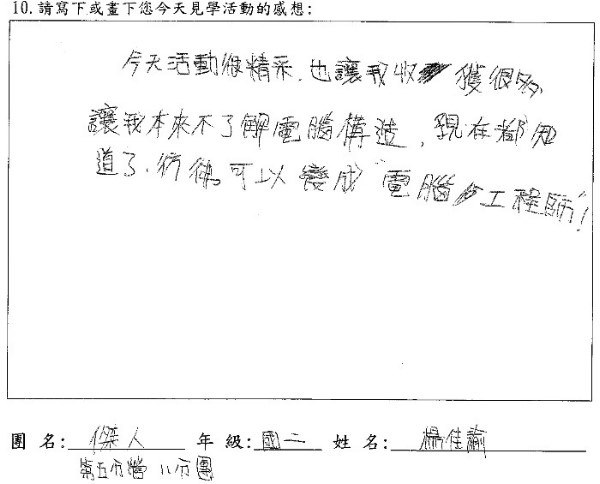 10.請寫下或畫下您今天見學活動的感想:
今天活動很精采,也讓我收獲很多,
讓我本來不了解電腦構造,現在都知
道了,彷彿可以變成"電腦工程師"!
團 名: 傑人 年 級: 國二 姓 名: 楊佳諭
第五分營 八分團